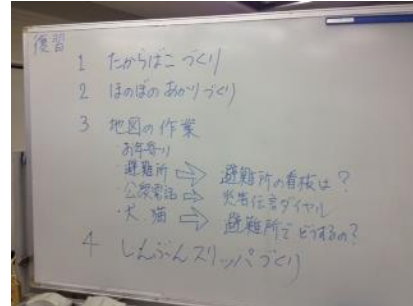 復習
1 たからばこづくり
2 ほのぼのあかりづくり
3 地図の作業
・お年寄り
・避難所 ⇨ 避難所の看板は?
・公衆電話 ⇨ 災害伝言ダイヤル
・犬 猫 ⇨ 避難所でどうするの?
4 しんぶんスリッパづくり